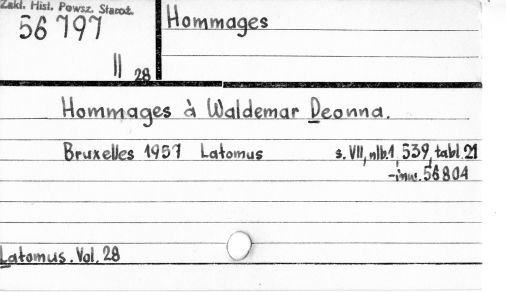 Zakł. Hist. Powsz. Staroż.
56797
II 28
Hommages
Hommages à Waldemar Deonna.
Bruxelles 1957 Latomus s. VII, nlb.1, 539, tabl. 21
-inw. 56804
Latomus. Vol. 28